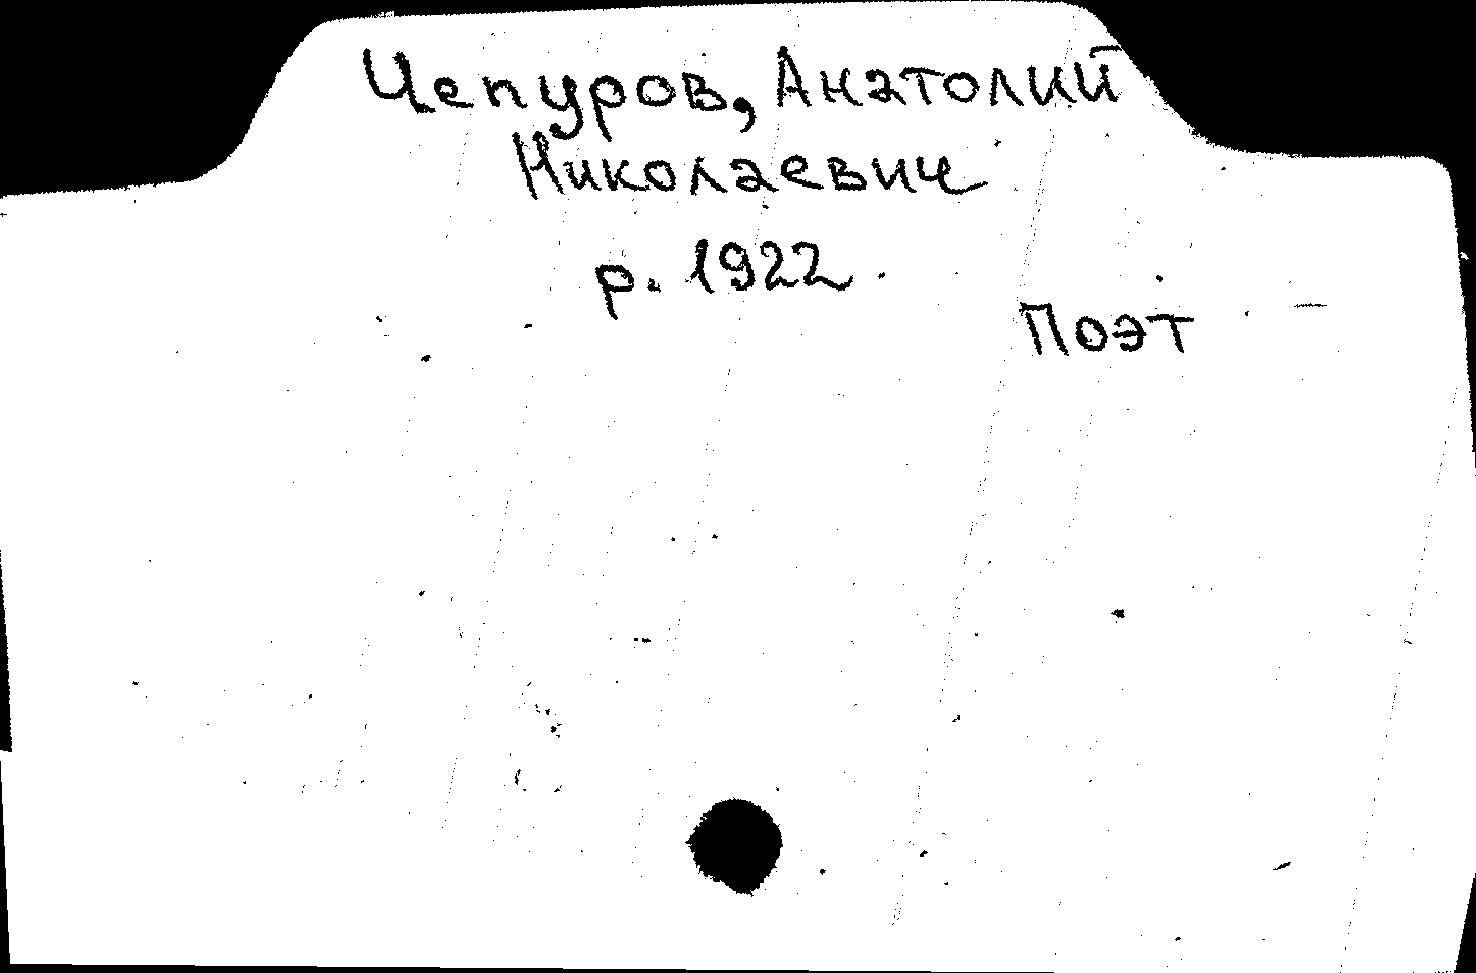 Чепуров, Анатолий
Николаевич
р. 1922
Поэт